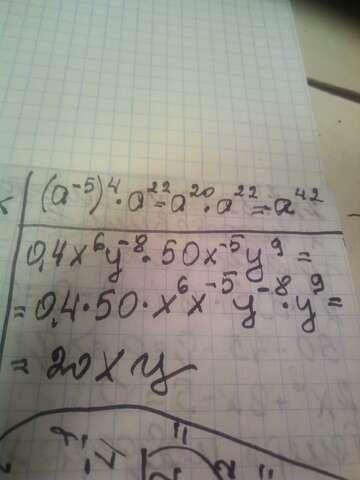 (a⁻⁵)⁴·a²²=a²⁰·a²²=a⁴²
0,4x⁶y⁻⁸·50x⁻⁵y⁹=
=0,4·50·x⁶x⁻⁵y⁻⁸·y⁹=
=20xy